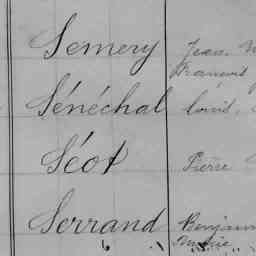 Semery Jean
François
Sénéchal Louis,
Séot Pierre
Serrand Benjam
Marie